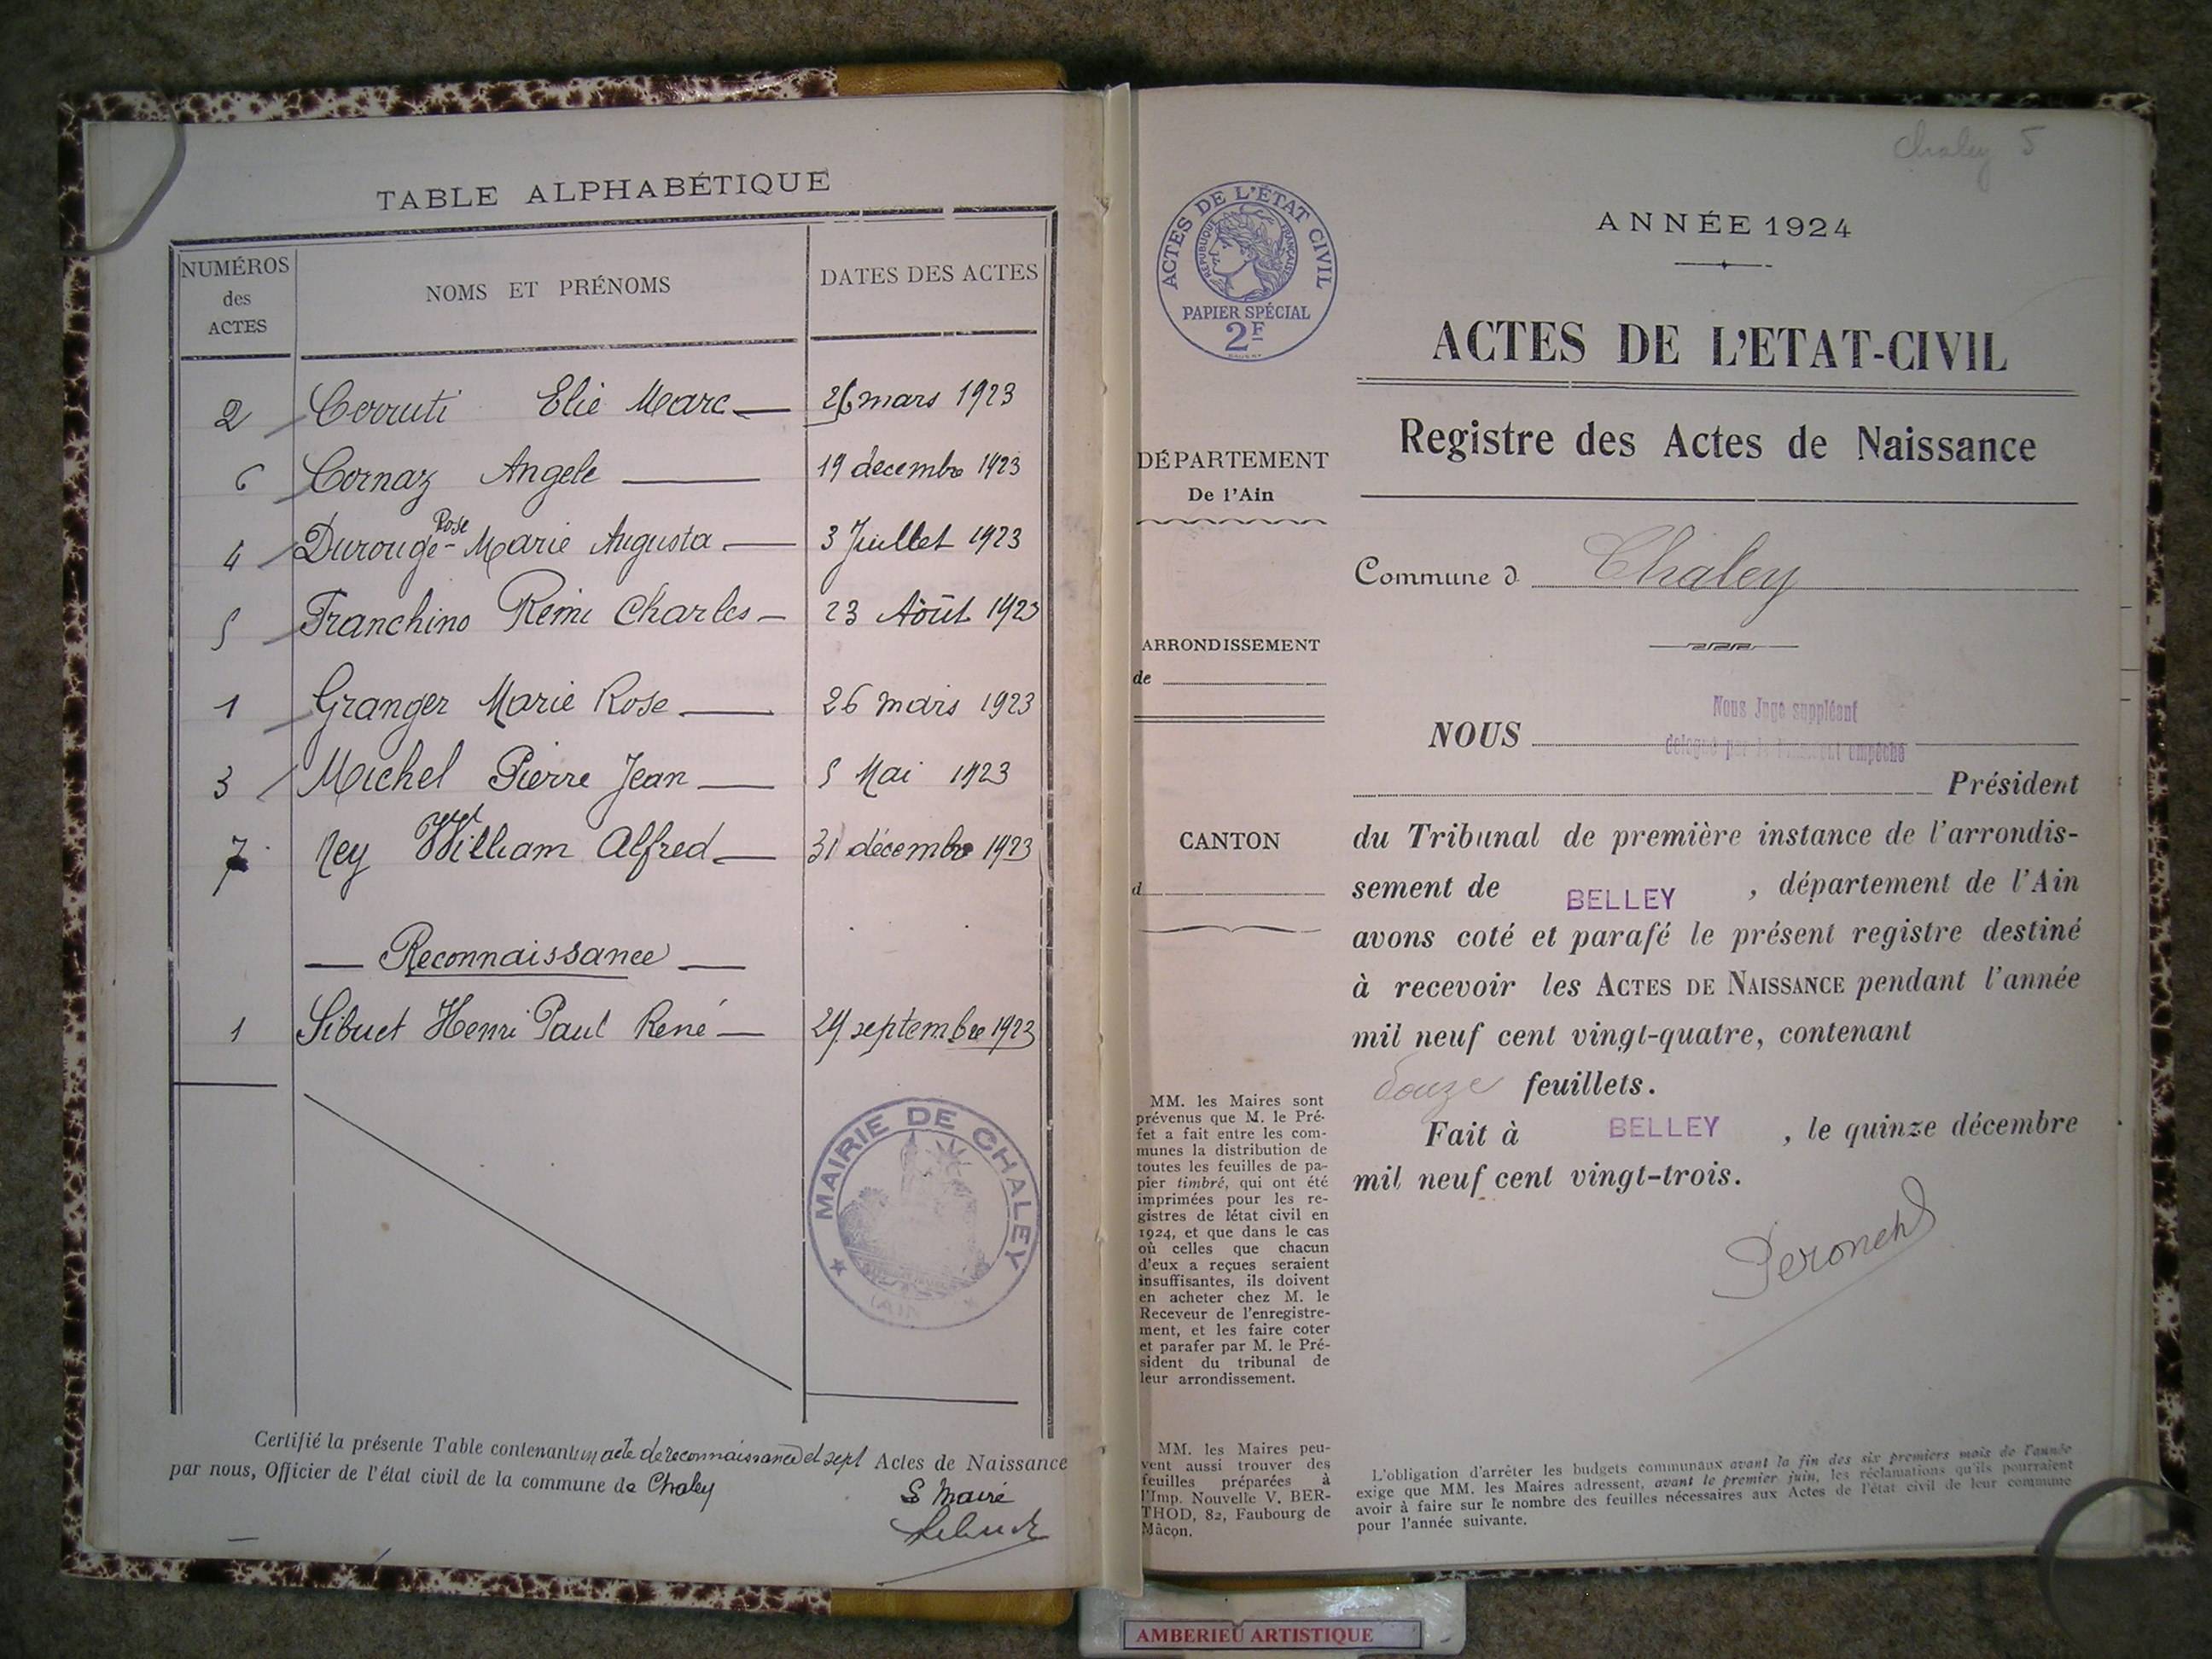 TABLE ALPHABÉTIQUE
NUMÉROS des ACTES
NOMS ET PRÉNOMS
DATES DES ACTES
2 Cerruti Elie Marc 26 mars 1923
6 Cornaz Angele 19 decembre 1923
Rose
4 Durouge - Marie Augusta 3 Juillet 1923
5 Franchino Rémi Charles 23 Août 1923
1 Granger Marie Rose 26 mars 1923
3 Michel Pierre Jean 5 Mai 1923
7 Rey William Alfred 31 décembre 1923
Reconnaissance
1 Sibuet Henri Paul René 24 septembre 1923
MAIRIE DE CHALEY
(AIN)
Certifié la présente Table contenant un acte de reconnaissance et sept Actes de Naissance
par nous, Officier de l'état civil de la commune de Chaley
Maire
chaley 5
ACTES DE L'ÉTAT CIVIL
RÉPUBLIQUE FRANÇAISE
PAPIER SPÉCIAL
2F
DÉPARTEMENT
De l'Ain
ARRONDISSEMENT
de
CANTON
d
MM. les Maires sont
prévenus que M. le Pré-
fet a fait entre les com-
munes la distribution de
toutes les feuilles de pa-
pier timbré, qui ont été
imprimées pour les re-
gistres de l'état civil en
1924, et que dans le cas
où celles que chacun
d'eux a reçues seraient
insuffisantes, ils doivent
en acheter chez M. le
Receveur de l'enregistre-
ment, et les faire coter
et parafer par M. le Pré-
sident du tribunal de
leur arrondissement.
MM. les Maires peu-
vent aussi trouver des
feuilles préparées à
l'Imp. Nouvelle V. BER-
THOD, 82, Faubourg de
Mâcon.
ANNÉE 1924
ACTES DE L'ETAT-CIVIL
Registre des Actes de Naissance
Commune d Chaley
Nous Juge suppléant
NOUS délégué par le Président empêché
Président
du Tribunal de première instance de l'arrondis-
sement de BELLEY, département de l'Ain
avons coté et parafé le présent registre destiné
à recevoir les ACTES DE NAISSANCE pendant l'année
mil neuf cent vingt-quatre, contenant
douze feuillets.
Fait à BELLEY, le quinze décembre
mil neuf cent vingt-trois.
L'obligation d'arrêter les budgets communaux avant la fin des six premiers mois de l'année
exige que MM. les Maires adressent, avant le premier juin, les réclamations qu'ils pourraient
avoir à faire sur le nombre des feuilles nécessaires aux Actes de l'état civil de leur commune
pour l'année suivante.
AMBERIEU ARTISTIQUE